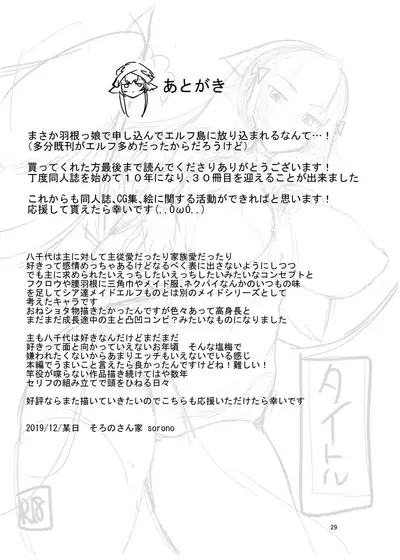 あとがき
まさか羽根っ娘で申し込んでエルフ島に放り込まれるなんて…！
(多分既刊がエルフ多めだったからだろうけど)
買ってくれた方最後まで読んでくださりありがとうございます！
丁度同人誌を始めて１０年になり、３０冊目を迎えることが出来ました
これからも同人誌、CG集、絵に関する活動ができればと思います！
応援して貰えたら幸いです(．．０ω０．．)
八千代は主に対して主従愛だったり家族愛だったり
好きって感情めっちゃあるけどなるべく表に出さないようにしつつ
でも主に求められたいえっちしたいえっちしたいみたいなコンセプトと
フクロウや腰羽根に三角巾やメイド服、ネクパイなんかのいつもの味
を足してシア達メイドエルフものとは別のメイドシリーズとして
考えたキャラです
おねショタ物描きたかったんですが色々あって高身長と
まだまだ成長途中の主と凸凹コンビ？みたいなものになりました
主も八千代は好きなんだけどまだまだ
好きって面と向かっていえないお年頃　そんな塩梅で
嫌われたくないからあまりエッチもいえないでいる感じ
本編でうまいこと言えたら良かったんですけどね！難しい！
竿役が喋らない作品描き続けてはや数年
セリフの組み立てで頭をひねる日々
好評ならまた描いていきたいのでこちらも応援いただけたら幸いです
2019/12/某日　そろのさん家 sorono
タイトル
R18
29